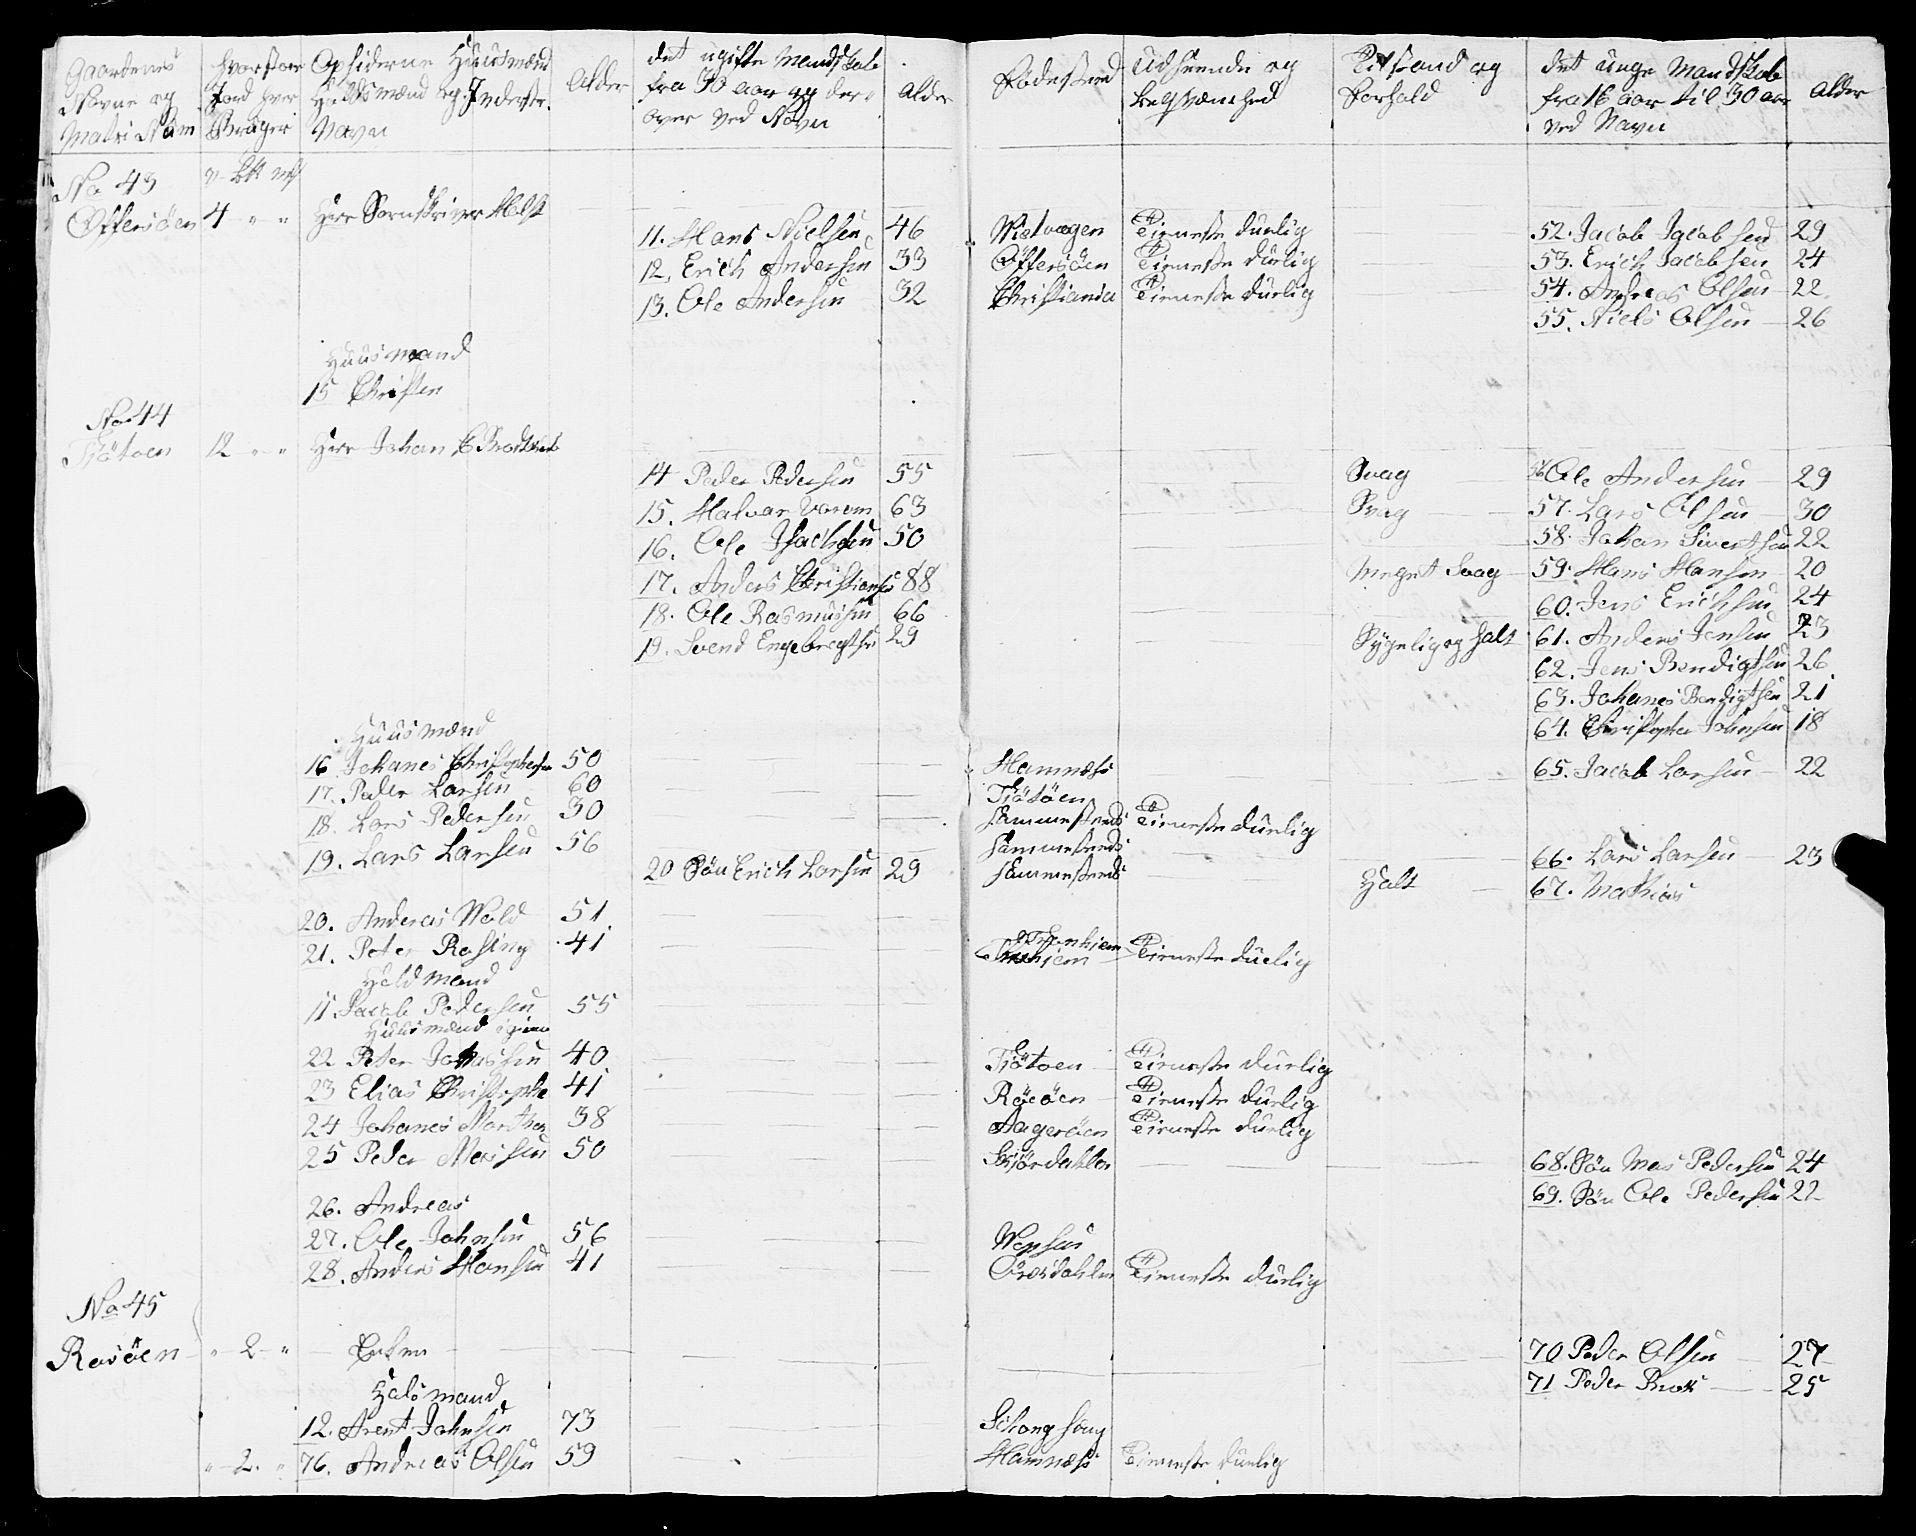 Gaardenes Navne og Matri Num | hvorstoer Jord hver Bruger | Opsiderne Huusmænd Halfsmænd og Inderste Navn | Alder | det ugifte Mandskab fra 30 aar og derover ved Navn | Alder | Födested | Udseende og beqvæmhed | Tilstand og forhold | det unge Mandskab fra 16 aar til 30 aar ved Navn | Alder
No 43
Offersöen 4 " " Herr Sornskriver Holst
11. Hans Nielsen 46 Tieneste duelig 52. Jacob Jacobsen 29
12. Erich Andersen 33 Offersöen Tieneste duelig 53. Erich Jacobsen 24
13. Ole Andersen 32 Christiania Tieneste duelig 54. Andreas Olsen 22
55. Niels Olsen 26
Huusmand
15 Christen
No 44
Tiötoen 12 " " Herr Johan
14 Peder Pedersen 55 Svag 56 Ole Andersen 29
15. Halvar 63 Svag 57. Lars Olsen 30
16. Ole Isachsen 50 58. Johan Sivertsen 22
17. Anders Christiansen 88 Meget Svag 59. Hans Hansen 20
18. Ole Rasmussen 66 60. Jens Erichsen 24
19. Svend Engebregtsen 29 Sygelig og halt 61. Anders Jensen 23
62. Jens Bendigtsen 26
63. Johanes Bendigtsen 21
64. Christopher Johnsen 18
Huusmænd
16 Johanes Christophersen 50 Hamnæss 65. Jacob Larsen 22
17. Peder Larsen 60 Tiötöen
18. Lars Pedersen 30 Sammesteds Tieneste duelig
19. Lars Larsen 56 Sammesteds 66. Lars Larsen 23
20 Sön Erich Larsen 29 Sammesteds Halt 67. Mathias
20. Anderas Wold 51
21. Peter Rosing 41 Tronhiem Tieneste duelig
Haldmand
11. Jacob Pedersen 55
Huusmænd igien
22 Peter 40 Tiötoen Tieneste duelig
23 Elias Christophe 41 Röröen Tieneste duelig
24 Johanes 38 Aageröen Tieneste duelig
25 Peder 50 Stördahlen 68. Sön Mas Pedersen 24
69. Sön Ole Pedersen 22
26. Andreas
27. Ole Johnsen 56
28. Anders Hansen 41 Tieneste duelig
No 45
Rosöen " 2 " Enken 70 Peder Olsen 27
71 Peder 25
Halsmand
12. Arent Johnsen 73
" 2. " 76. Andreas Olsen 59 Hamnæss Tieneste duelig